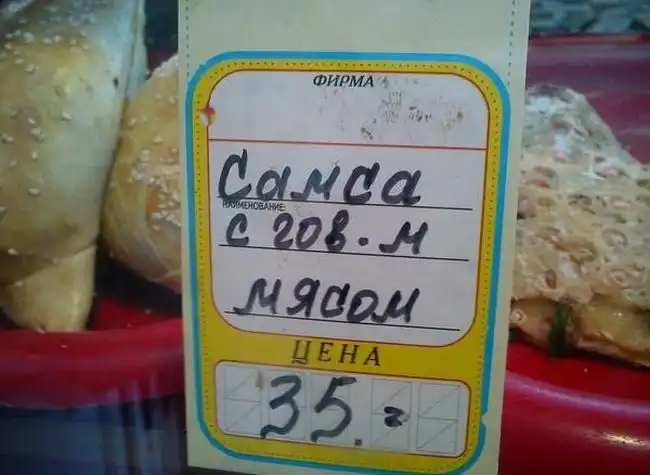 ФИРМА
Самса
НАИМЕНОВАНИЕ:
с гов. м
мясом
ЦЕНА
35.